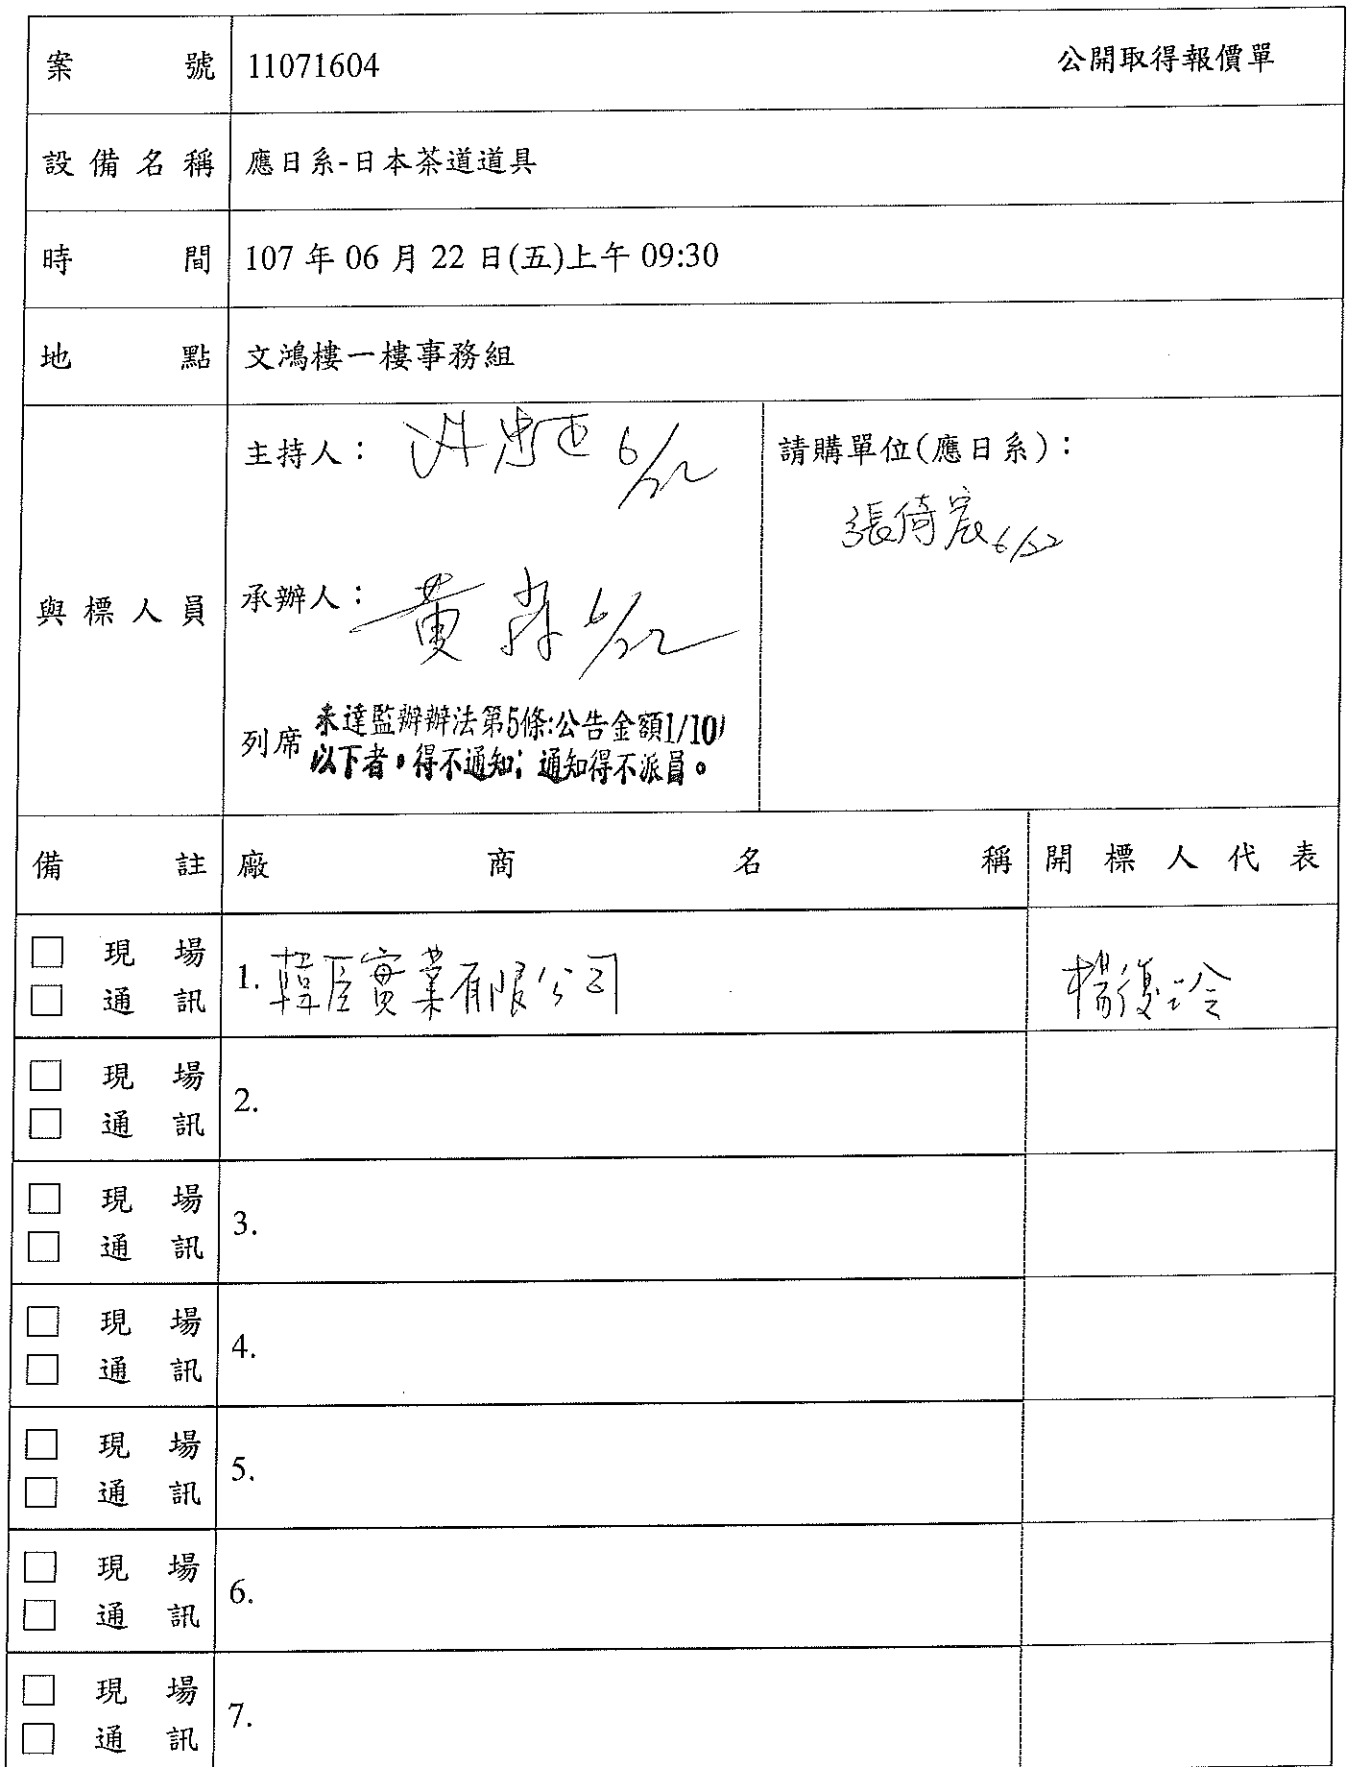 案號 11071604 公開取得報價單
設備名稱 應日系-日本茶道道具
時間 107 年 06 月 22 日(五)上午 09:30
地點 文鴻樓一樓事務組
與標人員
主持人： 洪忠 6/22
請購單位(應日系)：
張倚宸 6/22
承辦人： 黃 6/22
列席 未達監辦辦法第5條:公告金額1/10
以下者，得不通知；通知得不派員。
備註 廠商名稱 開標人代表
□ 現場
□ 通訊
1. 韓臣實業有限公司 楊復玲
□ 現場
□ 通訊
2.
□ 現場
□ 通訊
3.
□ 現場
□ 通訊
4.
□ 現場
□ 通訊
5.
□ 現場
□ 通訊
6.
□ 現場
□ 通訊
7.